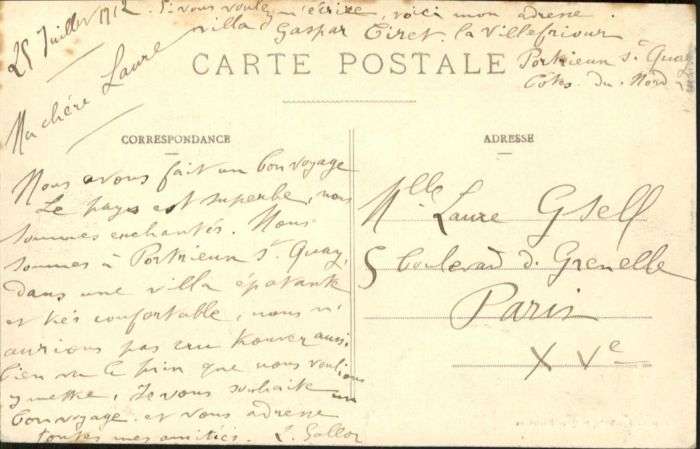 25 Juillet 1912
Si vous voulez m'écrire, voici mon adresse
villa Gaspar Tiret la Villefriour
Portrieux St Quay
Côtes du Nord
CARTE POSTALE
Ma chère Laure
CORRESPONDANCE
Nous avons fait un bon voyage
Le pays est superbe, nous
sommes enchantés. Nous
sommes à Portrieux St Quay,
dans une villa épatante
et très confortable, nous n'
aurions pas cru trouver aussi
bien vu le prix que nous voulions
y mettre, Je vous souhaite un
bon voyage et vous adresse
toutes mes amitiés.
ADRESSE
Mlle Laure Gsell
5 boulevard de Grenelle
Paris
XVe